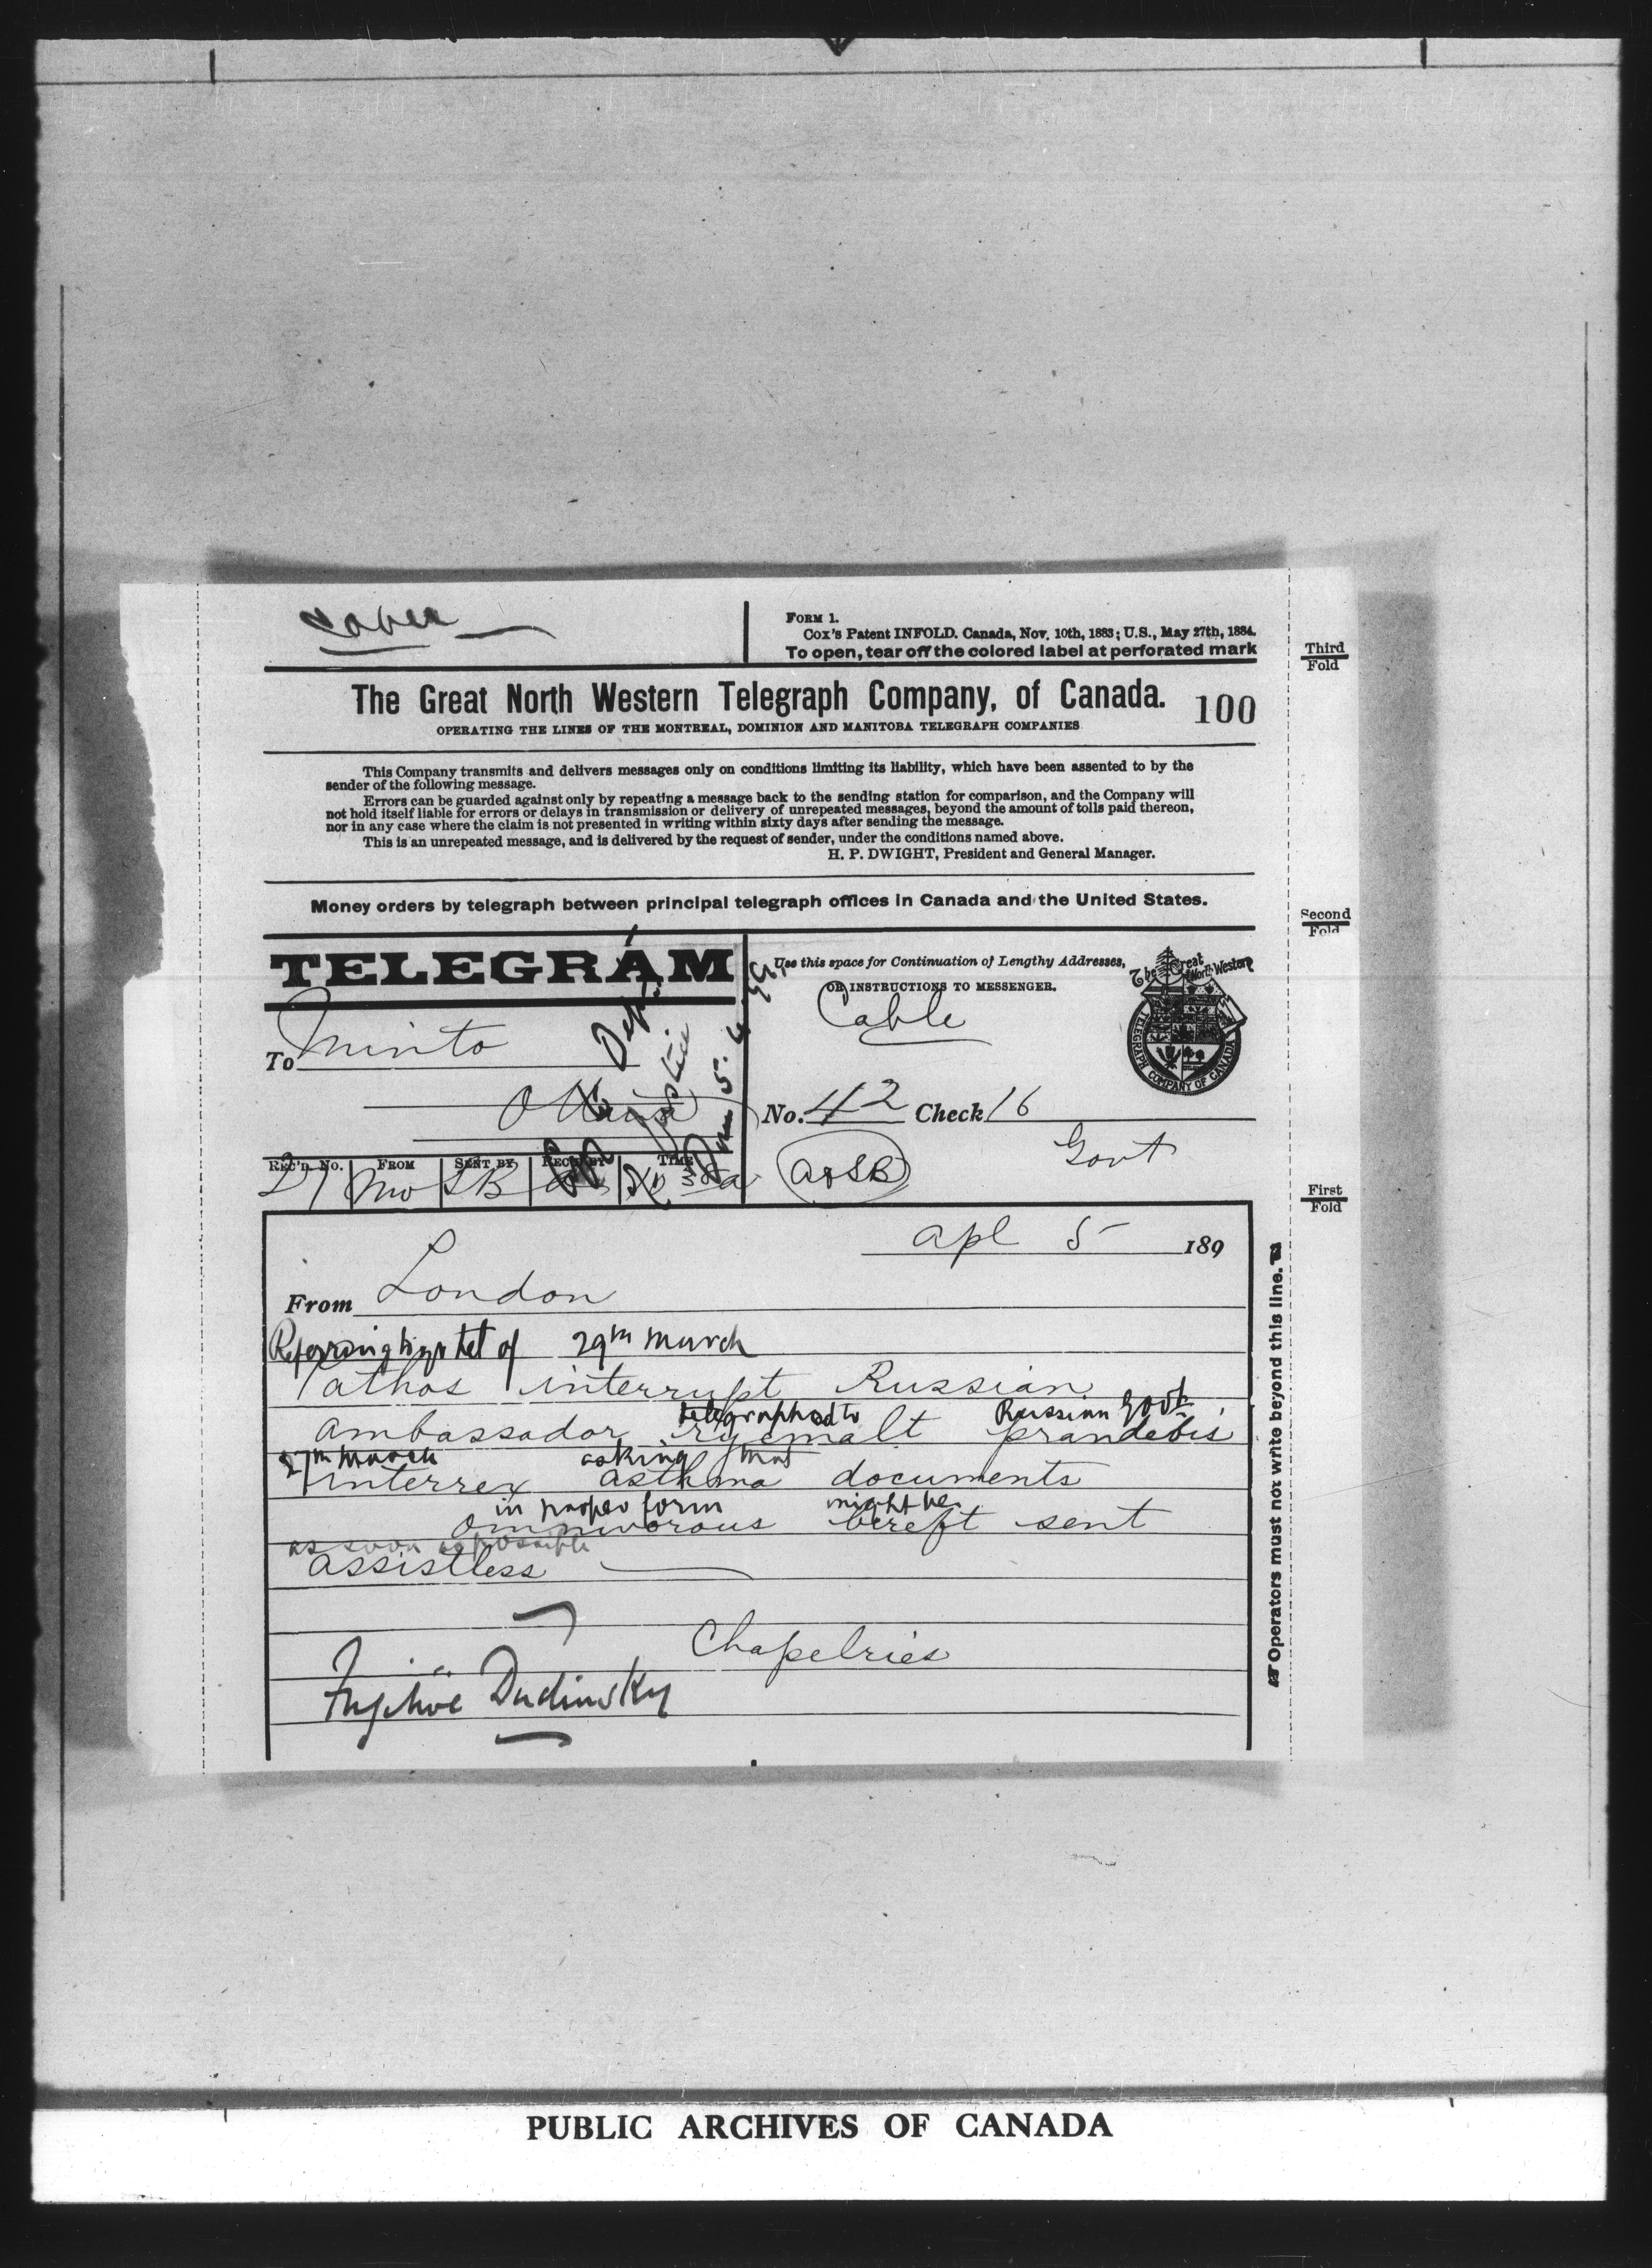 FORM 1.
Cox's Patent INFOLD. Canada, Nov. 10th, 1883; U.S., May 27th, 1884.
To open, tear off the colored label at perforated mark
Third
Fold
The Great North Western Telegraph Company, of Canada.
100
OPERATING THE LINES OF THE MONTREAL, DOMINION AND MANITOBA TELEGRAPH COMPANIES
This Company transmits and delivers messages only on conditions limiting its liability, which have been assented to by the
sender of the following message.
Errors can be guarded against only by repeating a message back to the sending station for comparison, and the Company will
not hold itself liable for errors or delays in transmission or delivery of unrepeated messages, beyond the amount of tolls paid thereon,
nor in any case where the claim is not presented in writing within sixty days after sending the message.
This is an unrepeated message, and is delivered by the request of sender, under the conditions named above.
H. P. DWIGHT, President and General Manager.
Money orders by telegraph between principal telegraph offices in Canada and the United States.
Second
Fold
TELEGRAM
Use this space for Continuation of Lengthy Addresses,
OR INSTRUCTIONS TO MESSENGER.
The Great North Western
TELEGRAPH COMPANY OF CANADA
Cable
To Minto
Ottawa
Dept
Justice
No. 42 Check 16
Govt
REC'D. No. FROM SENT BY REC'D BY TIME
27 Mo SB
First
Fold
apl 5 189
From London
Referring to yr tel of 29th March
Pathos interrupt Russian
telegraphed to Russian Govt
ambassador rycmalt prandebis
27th March asking that
interrex asthma documents
in proper form might be
omnivorous bereft sent
as soon as possible
assistless
Chapelries
Dudinsky
Operators must not write beyond this line.
PUBLIC ARCHIVES OF CANADA